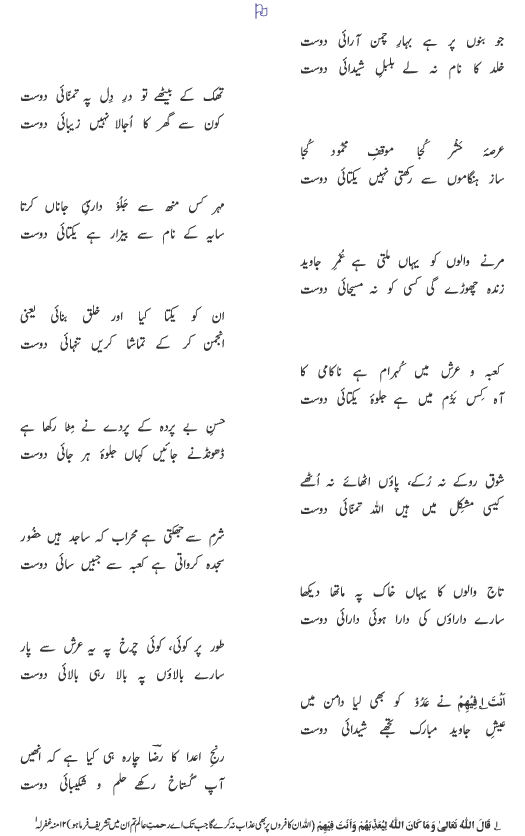 جو بنوں پر ہے بہارِ چمن آرائی دوست
خلد کا نام نہ لے بلبلِ شیدائی دوست
تھک کے بیٹھے تو درِ دِل پہ تمنّائی دوست
کون سے گھر کا اُجالا نہیں زیبائی دوست
عرصۂ حشر کُجا موقفِ محمُود کُجا
ساز ہنگاموں سے رکھتی نہیں یکتائی دوست
مہر کس منھ سے جِلَوْ داریِّ جاناں کرتا
سایہ کے نام سے بیزار ہے یکتائی دوست
مرنے والوں کو یہاں ملتی ہے عُمْرِ جاوید
زندہ چھوڑے گی کسی کو نہ مسیحائی دوست
ان کو یکتا کیا اور خلق بنائی یعنی
انجمن کر کے تماشا کریں تنہائی دوست
کعبہ و عرش میں کُہرام ہے ناکامی کا
آہ کِس بَزْم میں ہے جلوۂ یکتائی دوست
حسنِ بے پردہ کے پردے نے مِٹا رکھا ہے
ڈھونڈنے جائیں کہاں جلوۂ ہر جائی دوست
شوق روکے نہ رُکے، پاؤں اٹھائے نہ اُٹھے
کیسی مشکِل میں ہیں اللہ تمنّائی دوست
شرم سے جھکتی ہے محراب کہ ساجد ہیں حضُور
سجدہ کرواتی ہے کعبہ سے جبیں سائی دوست
تاج والوں کا یہاں خاک پہ ماتھا دیکھا
سارے داراؤں کی دارا ہوئی دارائی دوست
طور پر کوئی، کوئی چرخ پہ یہ عرش سے پار
سارے بالاؤں پہ بالا رہی بالائی دوست
اَنْتَ ۱ فِیْھِمْ نے عَدُوْ کو بھی لیا دامن میں
عیشِ جاوید مبارک تجھے شیدائی دوست
رنجِ اعدا کا رضؔا چارہ ہی کیا ہے کہ انھیں
آپ گستاخ رکھے حلم و شکیبائی دوست
۱ قَالَ اللّٰهُ تَعَالٰی وَمَا كَانَ اللّٰهُ لِیُعَذِّبَهُمْ وَاَنْتَ فِیْهِمْ (اللہ ان کافروں پر بھی عذاب نہ کرے گا جب تک اے رحمتِ عالم تم ان میں تشریف فرما ہو) ۱۲ منہ غفرلہ